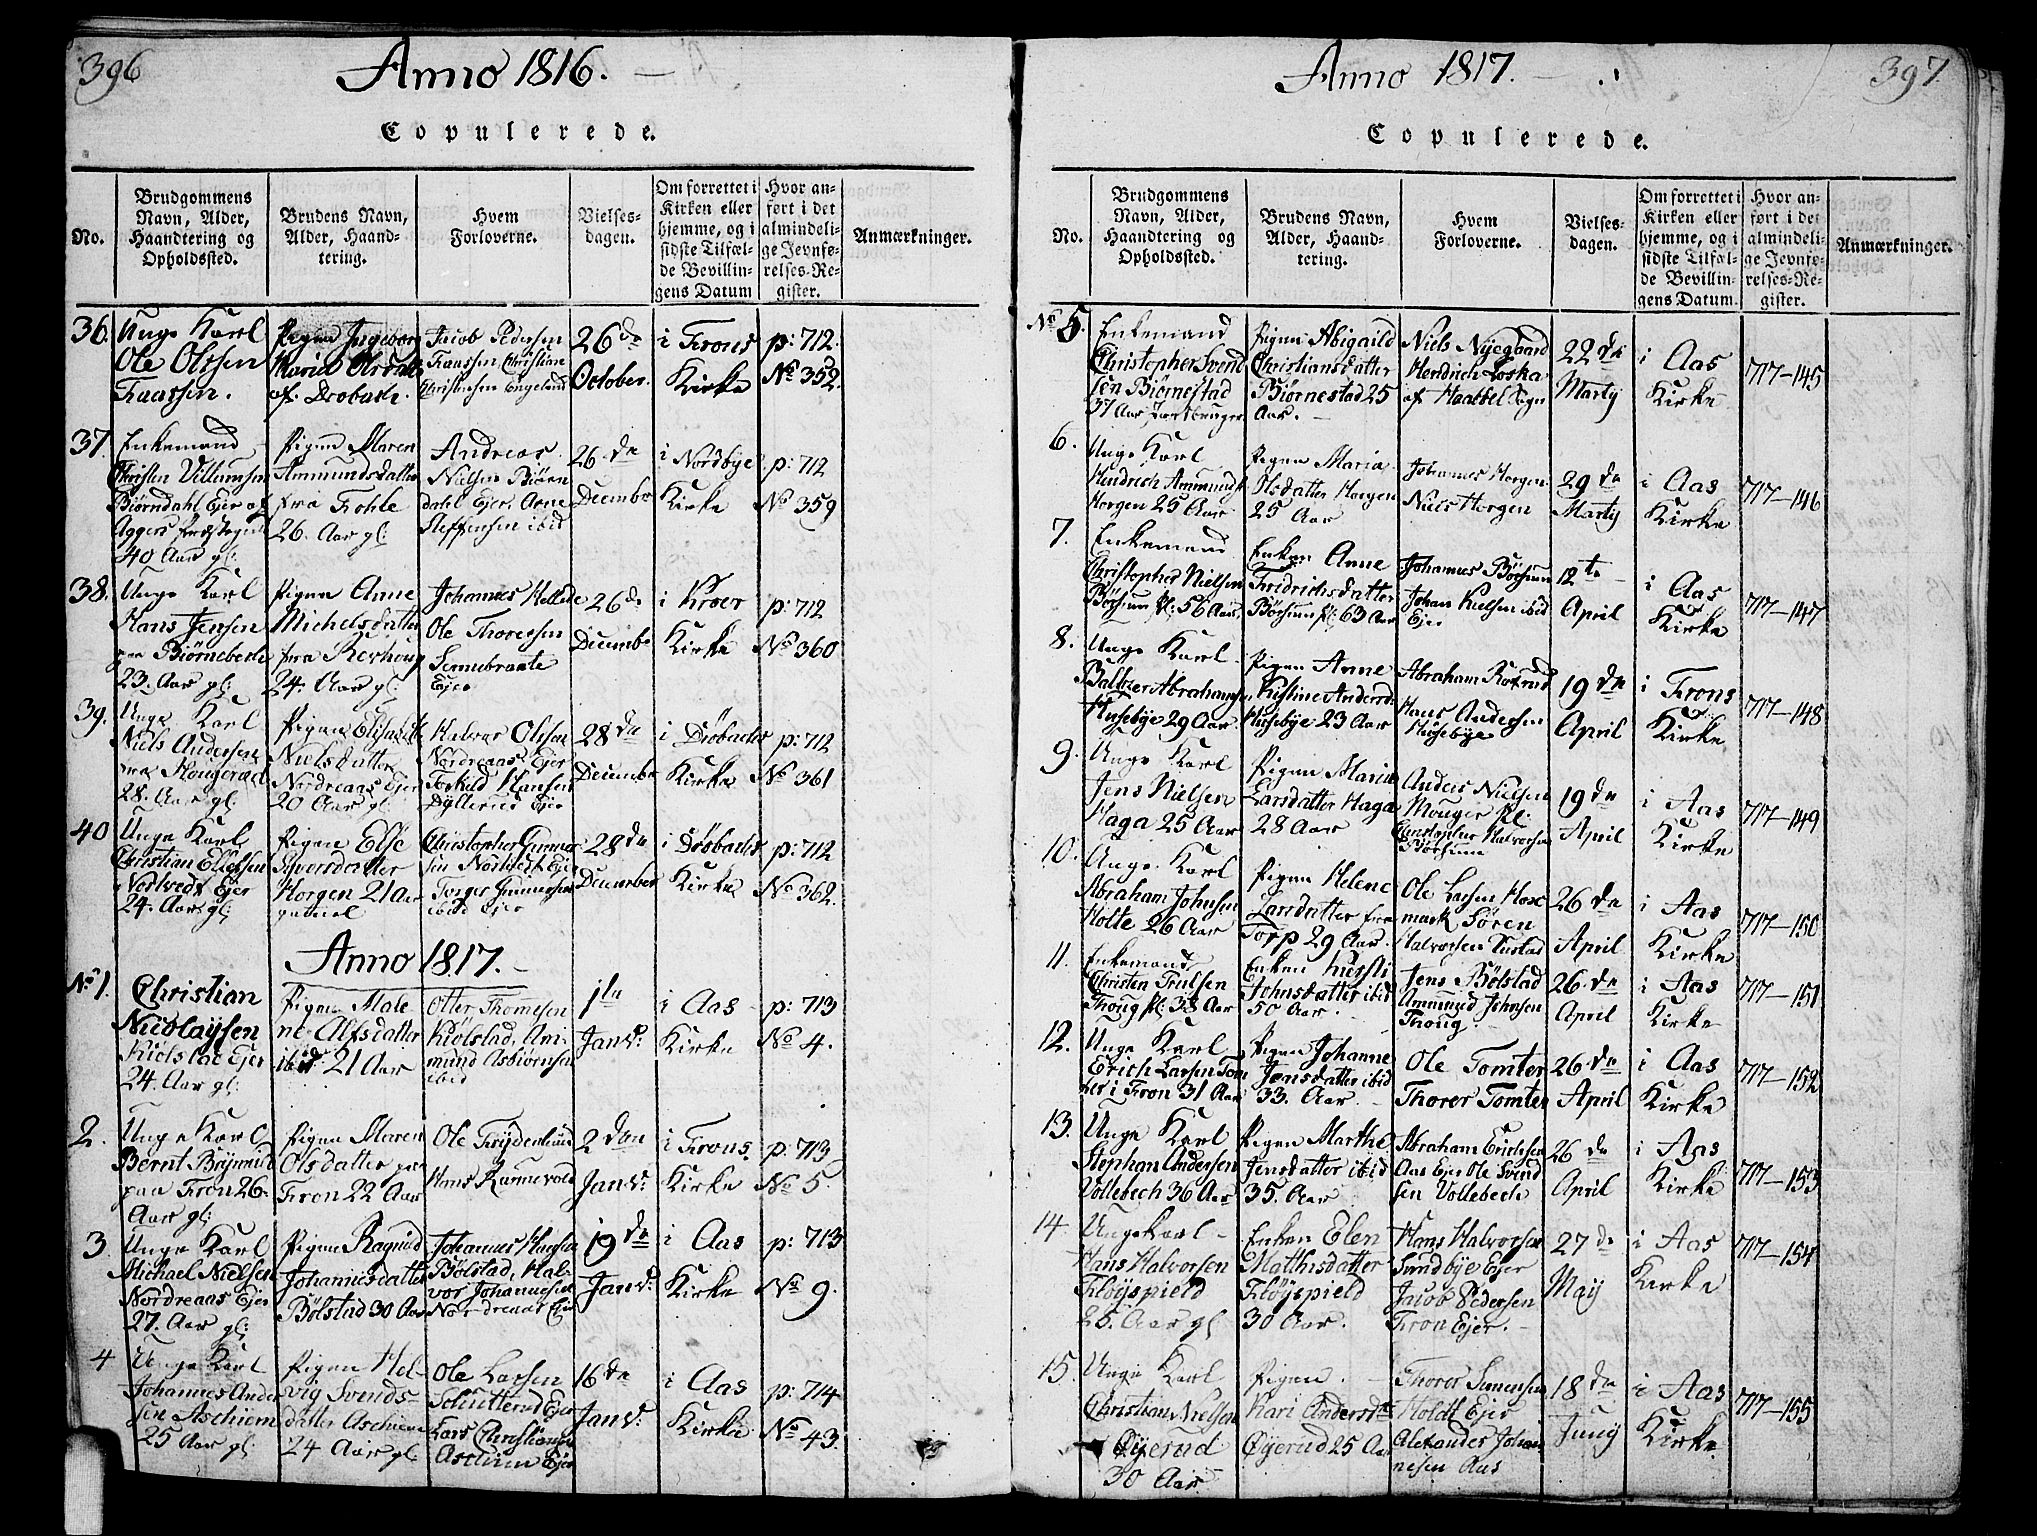 396
Anno 1816.
Copulerede.
No.
Brudgommens
Navn, Alder,
Haandtering og
Opholdssted.
Brudens Navn,
Alder, Haand-
tering.
Hvem
Forloverne.
Vielses-
dagen.
Om forrettet i
Kirken eller
hjemme, og i
sidste Tilfæl-
de Bevillin-
gens Datum
Hvor an-
ført i det
almindeli-
ge Jevnfø-
relses-Re-
gister.
Anmærkninger.
36.
Unge Karl
Ole Olssen
Faassen.
Pigen Ingebor
Maria Olsdat
af Drobach.
Jacob Pedersen
Faassen Christian
Christensen Engelund
26 de
October.
i Frons
Kirke
p: 712.
No 352.
37.
Enkemand
Christen Villumsen
Bjørndahl Ejer af
Aggers Præstegield
40 Aar gl:
Pigen Maren
Ammundsdatter
fra Fohle
26. Aar gl:
Andreas
Nielsen Biørn
dahl Ejer, Arne
Steffensen ibid
26 de
Decembr
i Nordbye
Kirke
p: 712
No 359
38.
Unge Karl
Hans Jensen
paa Biørnebech
23. Aar gl:
Pigen Anne
Michelsdatter
fra Revhoug
24. Aar gl:
Johannes Hellede
Ole Thoresen
Sennebraate
Ejer
26 de
Decembr
i Kroer
Kirke
p: 712
No 360
39.
Unge Karl
Niels Andersen
28. Aar gl:
Pigen Elisabeth
Nielsdatter
Nordreaas Ejer
20 Aar gl:
Halvor Olssen
Nordreaas Ejer
Torkild Hansen
Dyllerud Ejer
28 de
Decembr
i Drøbachs
Kirke
p: 712
No 361
40
Unge Karl
Christian Ellefsen
Nordvedt Ejer
24. Aar gl:
Pigen Else
Syversdatter
Horgen 21 Aar
gammel
Christopher Gunner
sen Nordvedt Ejer
Torger Gunnersen
ibid Ejer
28 de
December
i Drøbachs
Kirke
p: 712
No 362.
Anno 1817.
No 1.
Christian
Nicolaysen
Kiølstad Ejer
24. Aar gl:
Pigen Male
ne Alfsdatter
ibid: 21 Aar
Otter Thomesen
Kiølstad, Am
mund Asbiørnsen
ibid
1te
Janv:
i Aas
Kirke
p: 713
No 4.
2.
Unge Karl
Bernt Brynnild
paa Fron 26
Aar gl:
Pigen Maren
Olsdatter paa
Fron 22 Aar
Ole Frydenlund
Hans Rannevold
2 den
Janv:
i Frons
Kirke
p: 713
No 5.
3
Unge Karl
Michael Nielsen
Nordreaas Ejer
27. Aar gl:
Pigen Ragnild
Johannesdatter
Bølstad 30 Aar
Johannes Hansen
Bølstad, Hal-
vor Johannessen
Nordreaas Ejer
19 de
Janv:
i Aas
Kirke
p: 713
No 9.
4
Unge Karl
Johannes Ander
sen Aschiem
25 Aar gl:
Pigen Hel-
vig Svends-
datter Aschiem
24 Aar gl:
Ole Larsen
Schutterud Ejer
Lars Christiansen
Aschiem Ejer
16 de
Janv:
i Aas
Kirke
p: 714
No 43.
397
Anno 1817.
Copulerede.
No.
Brudgommens
Navn, Alder,
Haandtering og
Opholdssted.
Brudens Navn,
Alder, Haand-
tering.
Hvem
Forloverne.
Vielses-
dagen.
Om forrettet i
Kirken eller
hjemme, og i
sidste Tilfæl-
de Bevillin-
gens Datum.
Hvor an-
ført i det
almindeli-
ge Jevnfø-
relses-Re-
gister.
Anmærkninger.
No 5.
Enkemand
Christopher Svend
sen Biørnestad
37 Aar
Pigen Abigaild
Christiansdatter
Biørnestad 25
Aar.
Niels Nyegaard
Hendrich Loska
af Haabbel Sogn
22 de
Martij
i Aas
Kirke
717-145
6.
Unge Karl
Hindrich Ammunds
Horgen 25 Aar
Pigen Maria
Olsdatter Horgen
25 Aar
Johannes Horgen
Niels Horgen
29 de
Martij
i Aas
Kirke
717-146
7.
Enkemand
Christopher Nielsen
Børsum Pl: 56 Aar
Enken Anne
Fridrichsdatter
Børsum Pl: 63 Aar
Johannes Børsum
Johan Nielsen ibid
Ejer
12 te
April
i Aas
Kirke
717-147
8.
Unge Karl
Baltzer Abrahamsen
Husebye 29 Aar
Pigen Anne
Kistine Andersd
Husebye 23 Aar
Abraham Roterud
Hans Andersen
Husebye
19 de
April
i Frons
Kirke
717-148
9.
Unge Karl
Jens Nielsen
Haga 25 Aar
Pigen Maria
Larsdatter Haga
28 Aar
Anders Nielsen
Mouger Pl:
Christopher Halvorsen
Børsum
19 de
April
i Aas
Kirke
717-149
10.
Unge Karl
Abraham Johnsen
Holte 26 Aar
Pigen Helene
Larsdatter fra
Torp 29 Aar.
Ole Larsen Hox
mark Søren
Halvorsen Tustad
26 de
April
i Aas
Kirke
717-150
11.
Enkemand
Christen Trulsen
Thoug Pl: 38 Aar
Enken Kirsti
Johnsdatter ibid
50 Aar.
Jens Bølstad
Ammund Johnsen
Thoug.
26 de
April
i Aas
Kirke
717-151
12.
Unge Karl
Erich Larsen Tom
ter i Fron 31 Aar
Pigen Johanne
Jensdatter ibid
33. Aar
Ole Tomter
Thorer Tomter
26 de
April
i Aas
Kirke
717-152
13.
Unge Karl
Stephan Andersen
Vollebech 36 Aar
Pigen Marthe
Jensdatter ibid
35. Aar
Abraham Erichsen
Aas Ejer Ole Svend
sen Vollebech
26 de
April
i Aas
Kirke
717-153
14
Ungekarl
Hans Halvorsen
Fløyspield
25. Aar gl
Enken Elen
Mathisdatter
Fløyspield
30 Aar.
Hans Halvorsen
Sundbye Ejer
Jacob Pedersen
Fron Ejer.
27 de
Maij
i Aas
Kirke
717-154
15.
Unge Karl
Christian Nielsen
Øijerud
30 Aar
Pigen
Kari Andersd
Øijerud 25 Aar
Thorer Simensen
Holdt Ejer
Alexander Johan
nesen Aas
18 de
Junij
i Aas
Kirke
717-155